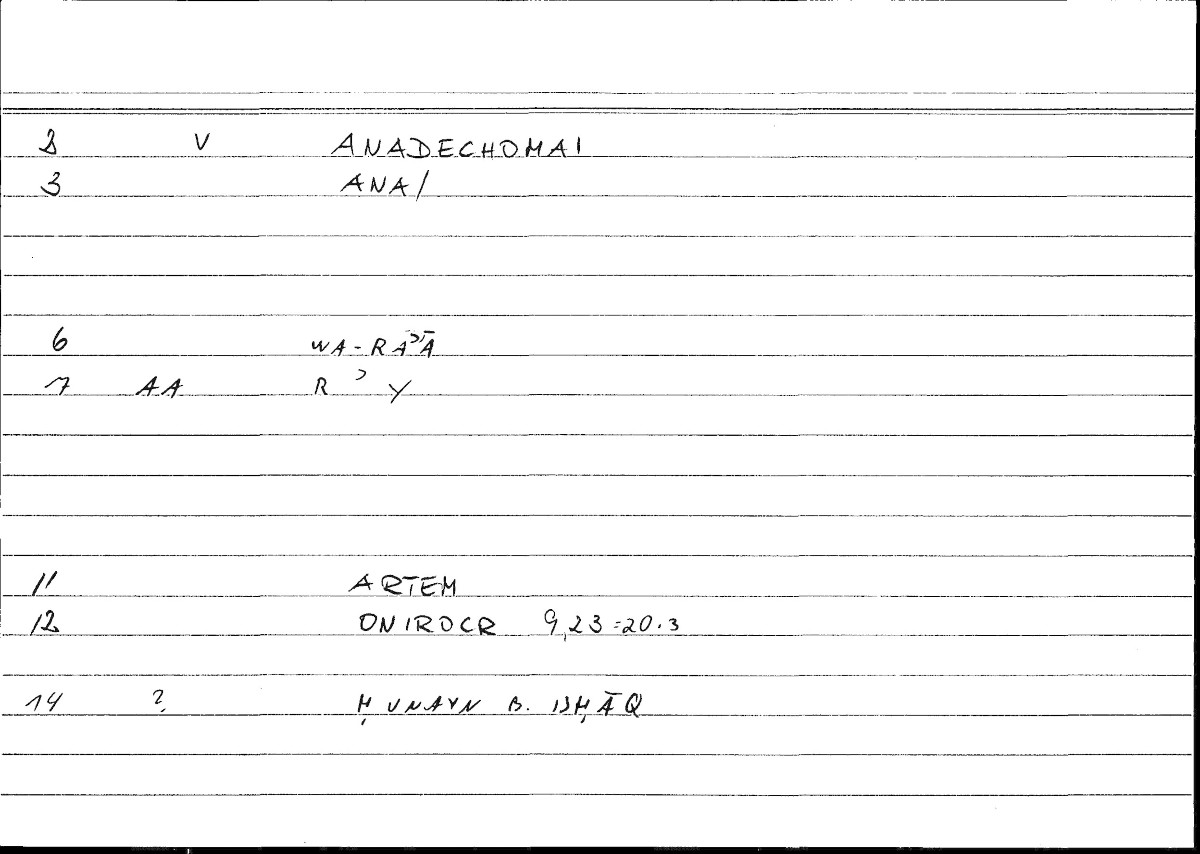 2 V ANADECHOMAI
3 ANA/
6 WA-RAʾĀ
7 AA R ʾ Y
11 ARTEM
12 ONIROCR 9,23=20.3
14 ? ḤUNAYN B. ISḤĀQ